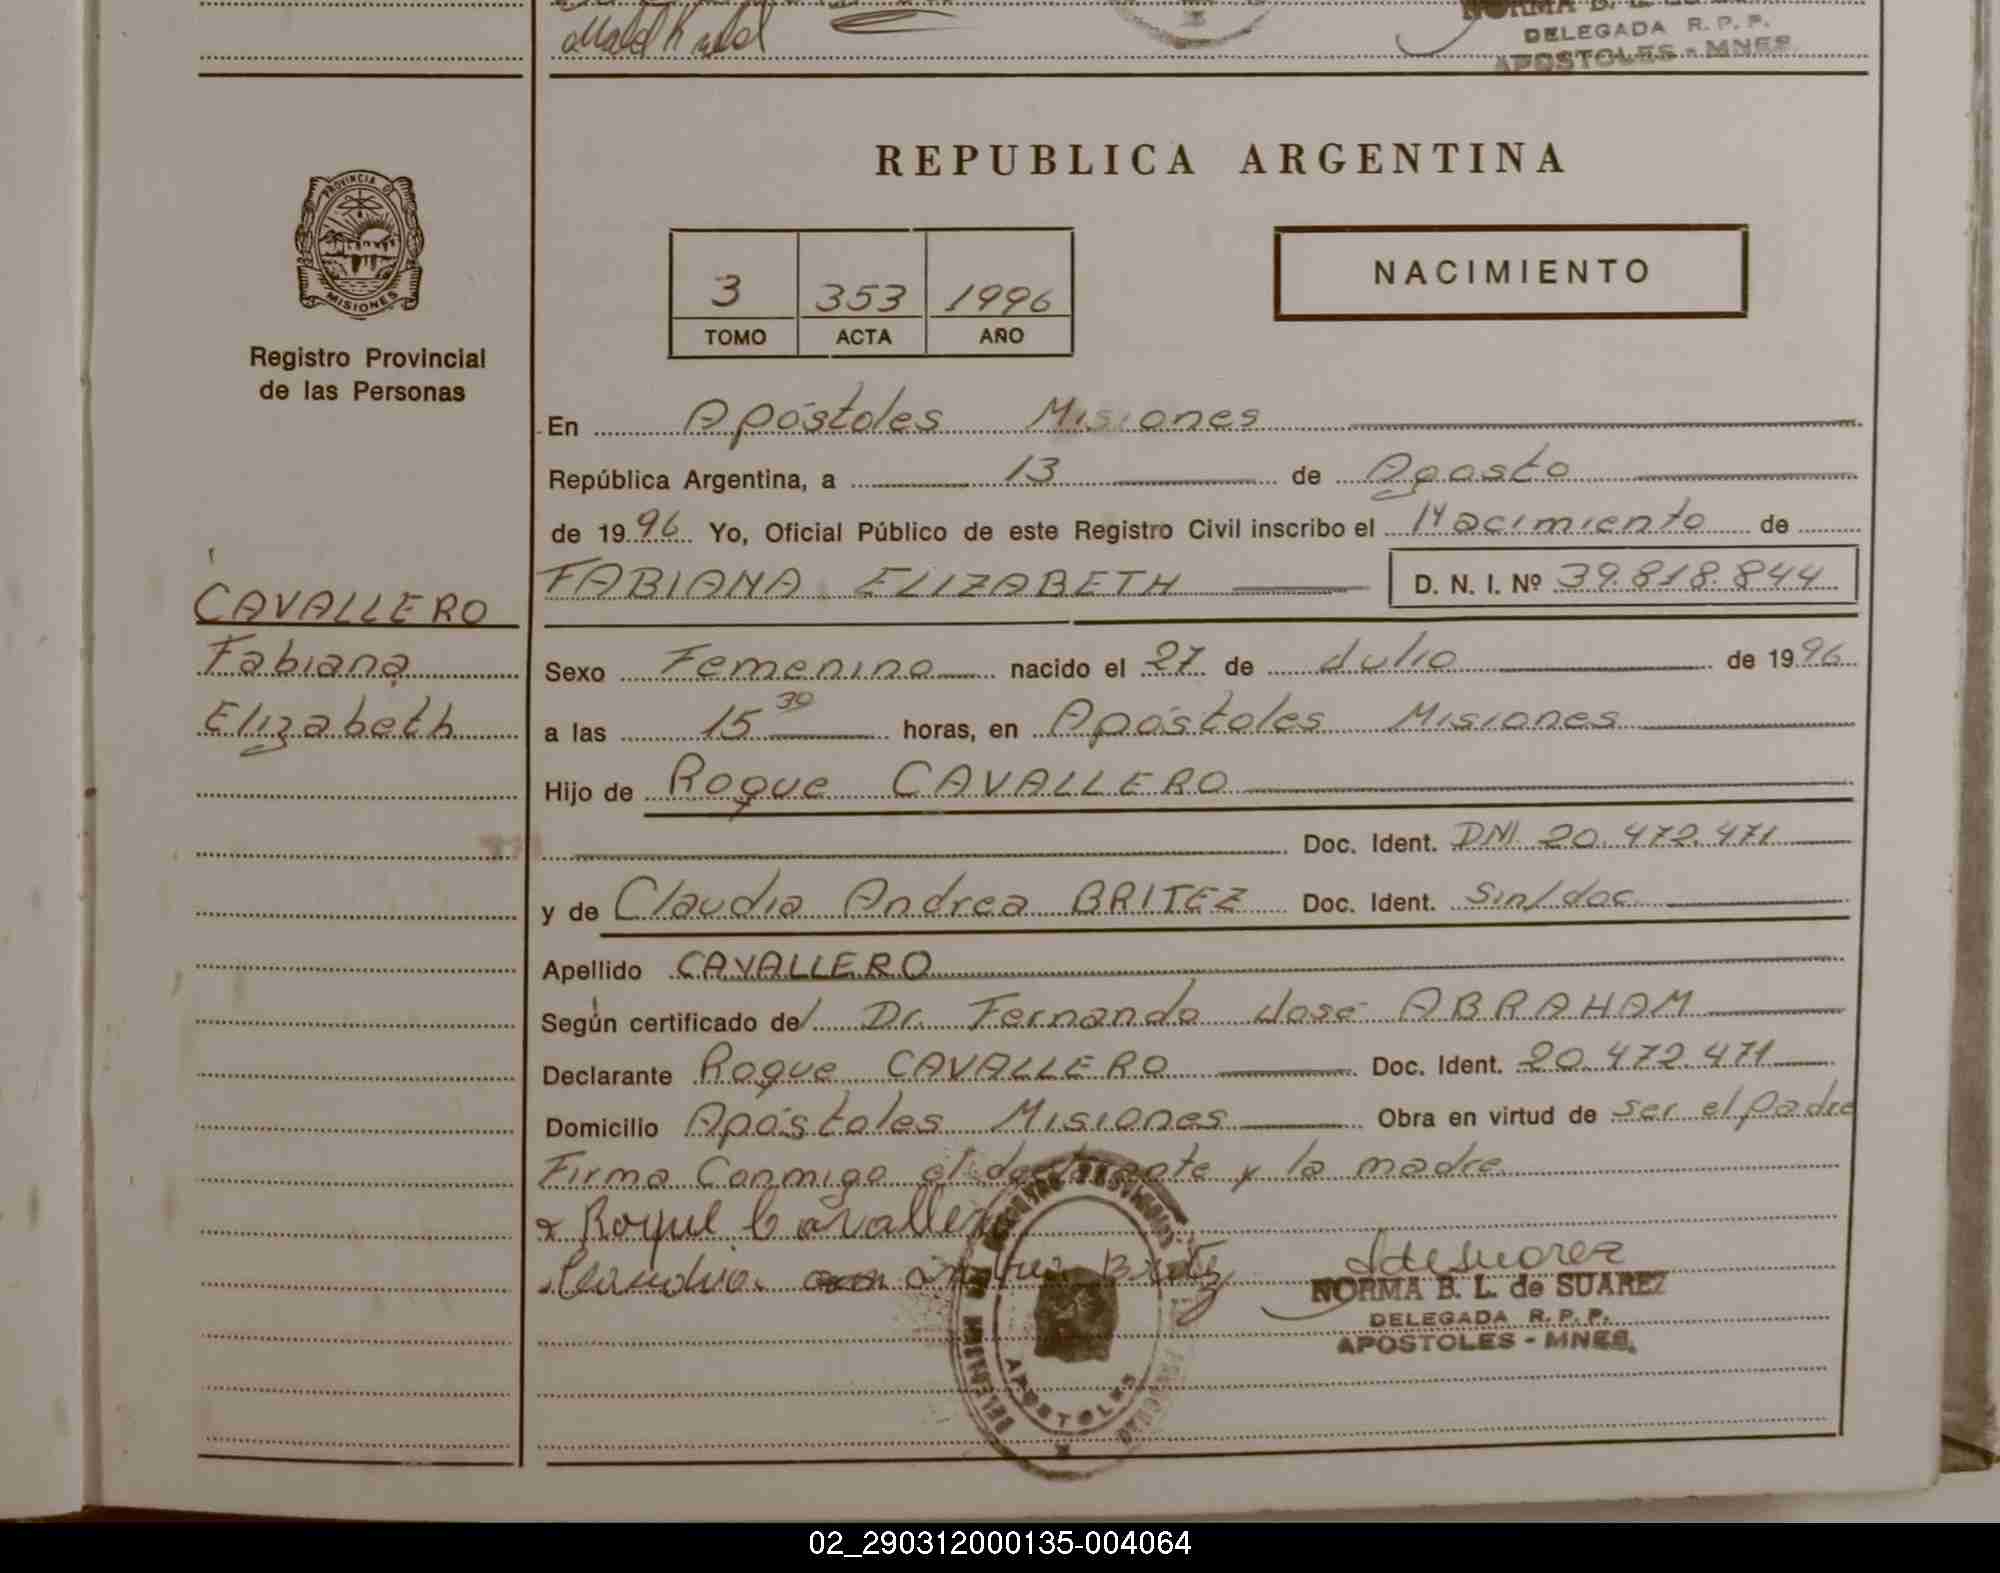 NORMA B. L.
DELEGADA R. P. P.
APOSTOLES - MNES.
REPUBLICA ARGENTINA
PROVINCIA D
MISIONES
Registro Provincial
de las Personas
3 353 1996
TOMO ACTA AÑO
NACIMIENTO
En Apóstoles Misiones
República Argentina, a 13 de Agosto
de 1996 Yo, Oficial Público de este Registro Civil inscribo el Nacimiento de
FABIANA ELIZABETH D. N. I. Nº 39.818.844
CAVALLERO
Fabiana
Elizabeth
Sexo Femenino nacido el 27 de Julio de 1996
a las 15 30 horas, en Apóstoles Misiones
Hijo de Roque CAVALLERO
Doc. Ident. DNI. 20.472.471
y de Claudia Andrea BRITEZ Doc. Ident. Sin/doc
Apellido CAVALLERO
Según certificado del Dr. Fernando José ABRAHAM
Declarante Roque CAVALLERO Doc. Ident. 20.472.471
Domicilio Apóstoles Misiones Obra en virtud de ser el padre
Firma Conmigo el declarante y la madre
Roque Cavallero
Claudia Andrea Britez
SdeSuarez
NORMA B. L. de SUAREZ
DELEGADA R. P. P.
APOSTOLES - MNES.
APOSTOLES
02_290312000135-004064